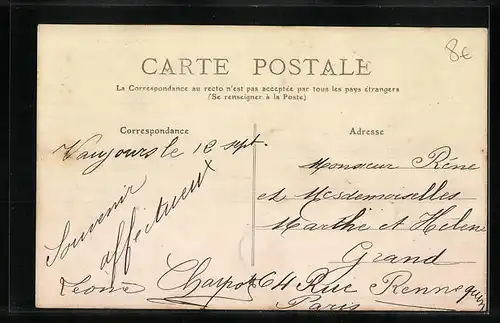 8€
CARTE POSTALE
La Correspondance au recto n'est pas acceptée par tous les pays étrangers
(Se renseigner à la Poste)
Correspondance
Adresse
Vaujours le 12 sept.
Souvenir
affectueux
Monsieur Réne
et Mesdemoiselles
Marthe et Helene
Grand
64 Rue Rennequin
Paris